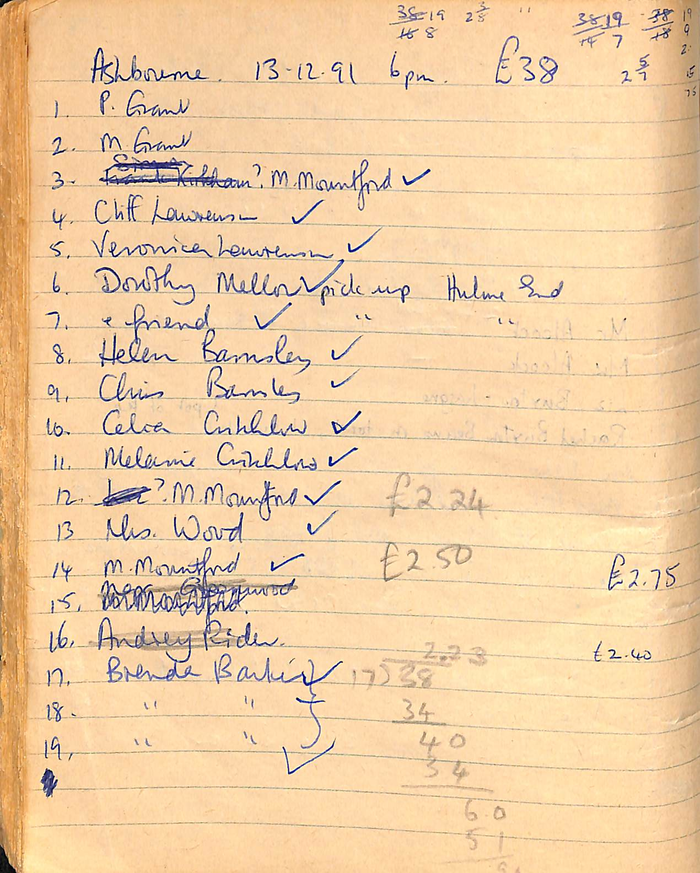 38 19 2 3/8 " 38 19 38 19
18 8 19 7 18 9
Ashbourne. 13-12-91 6pm. £38 2 5/7
1. P. Grant
2. M Grant
3. ? M. Mountford ✓
4. Cliff Lawrenson ✓
5. Veronica Lawrenson ✓
6. Dorothy Mellor ✓ pick up Hulme End
7. + friend ✓ " "
8. Helen Barnsley ✓
9. Chris Barnsley ✓
10. Celia Critchlow ✓
11. Melanie Critchlow ✓
12. ? M. Mountford ✓ £2.24
13 Mrs. Wood ✓
14 M. Mountford ✓ £2.50 £2.75
15.
16. Audrey Rider. £2.40
17. Brenda ✓ 2.23
17)38
18. " " 34
19. " " ✓ 40
34
60
51